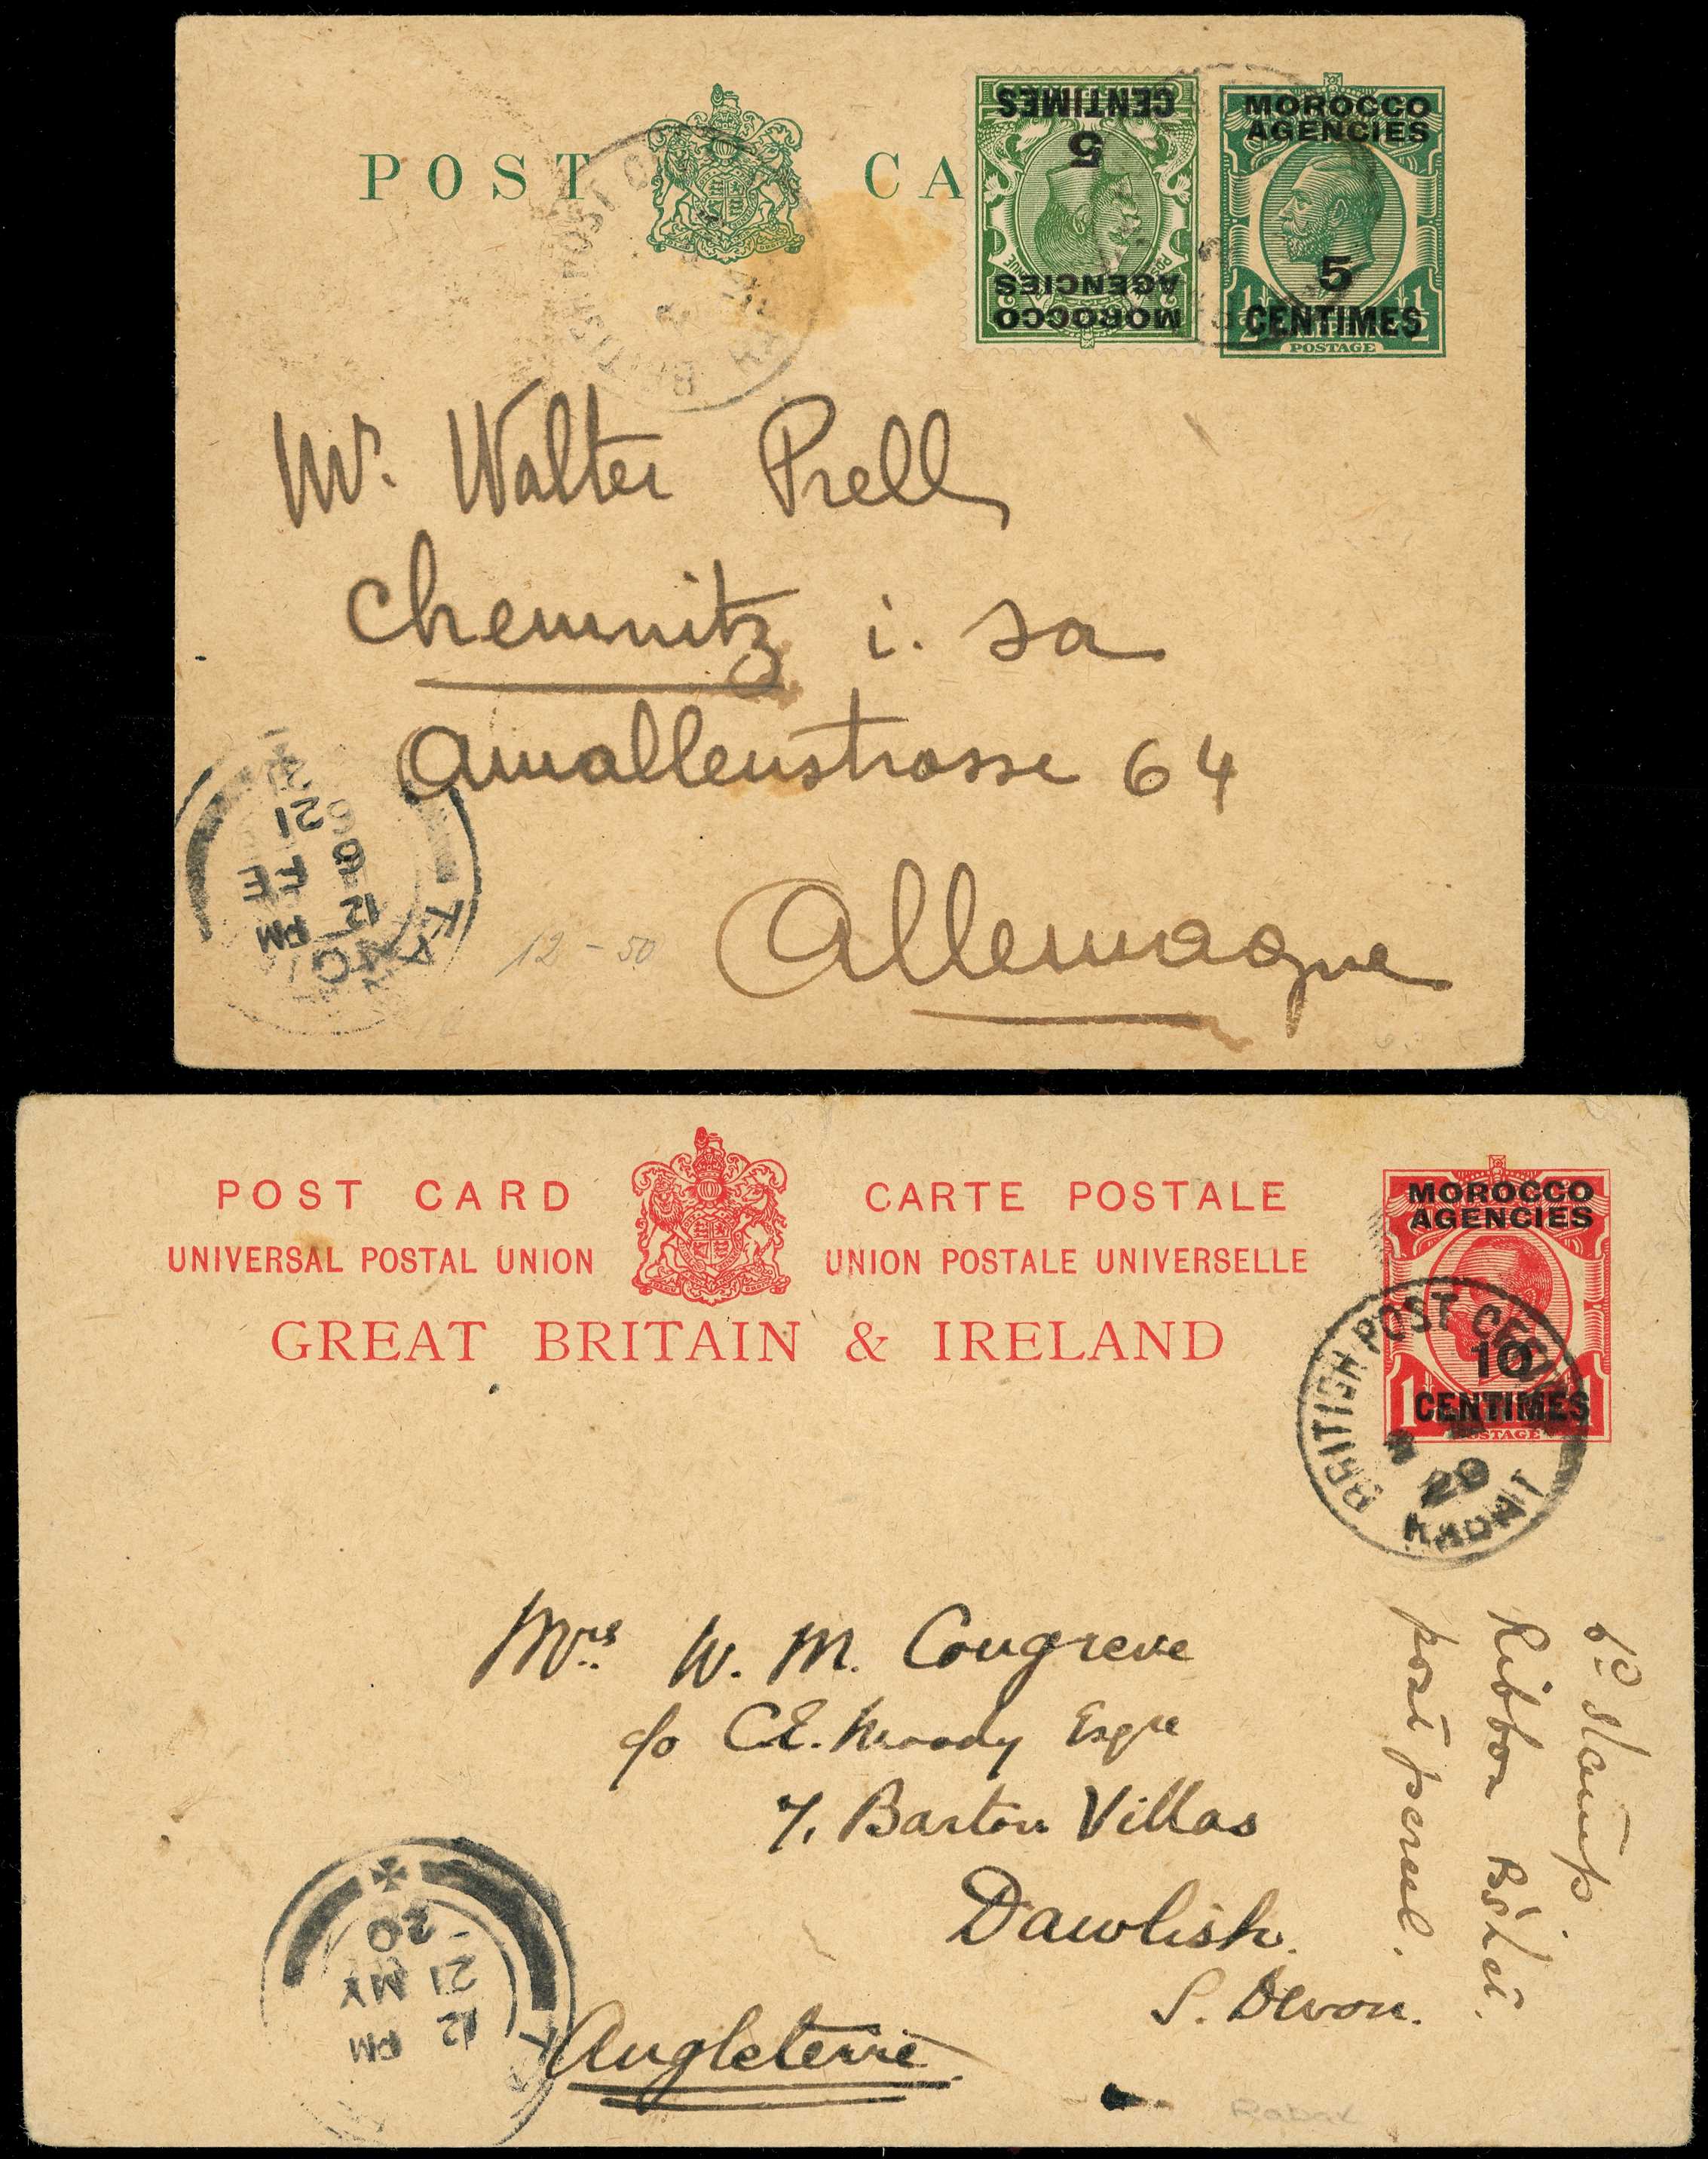 POST CA
MOROCCO
AGENCIES
5
CENTIMES
MOROCCO
AGENCIES
5
CENTIMES
½ ½
POSTAGE
BRITISH POST
Mr. Walter Prell
Chemnitz i. Sa
Amallenstrasse 64
Allemagne
12 PM
21 FE
12-50
POST CARD CARTE POSTALE
UNIVERSAL POSTAL UNION UNION POSTALE UNIVERSELLE
GREAT BRITAIN & IRELAND
MOROCCO
AGENCIES
10
CENTIMES
1 1
POSTAGE
BRITISH POST
20
Mrs. W. M. Congreve
c/o C.E. Moody Esqre
7, Barton Villas
Dawlish.
S. Devon.
Angleterre
12 PM
21 MY
20
Stamp
Ribbon
post
Rabat